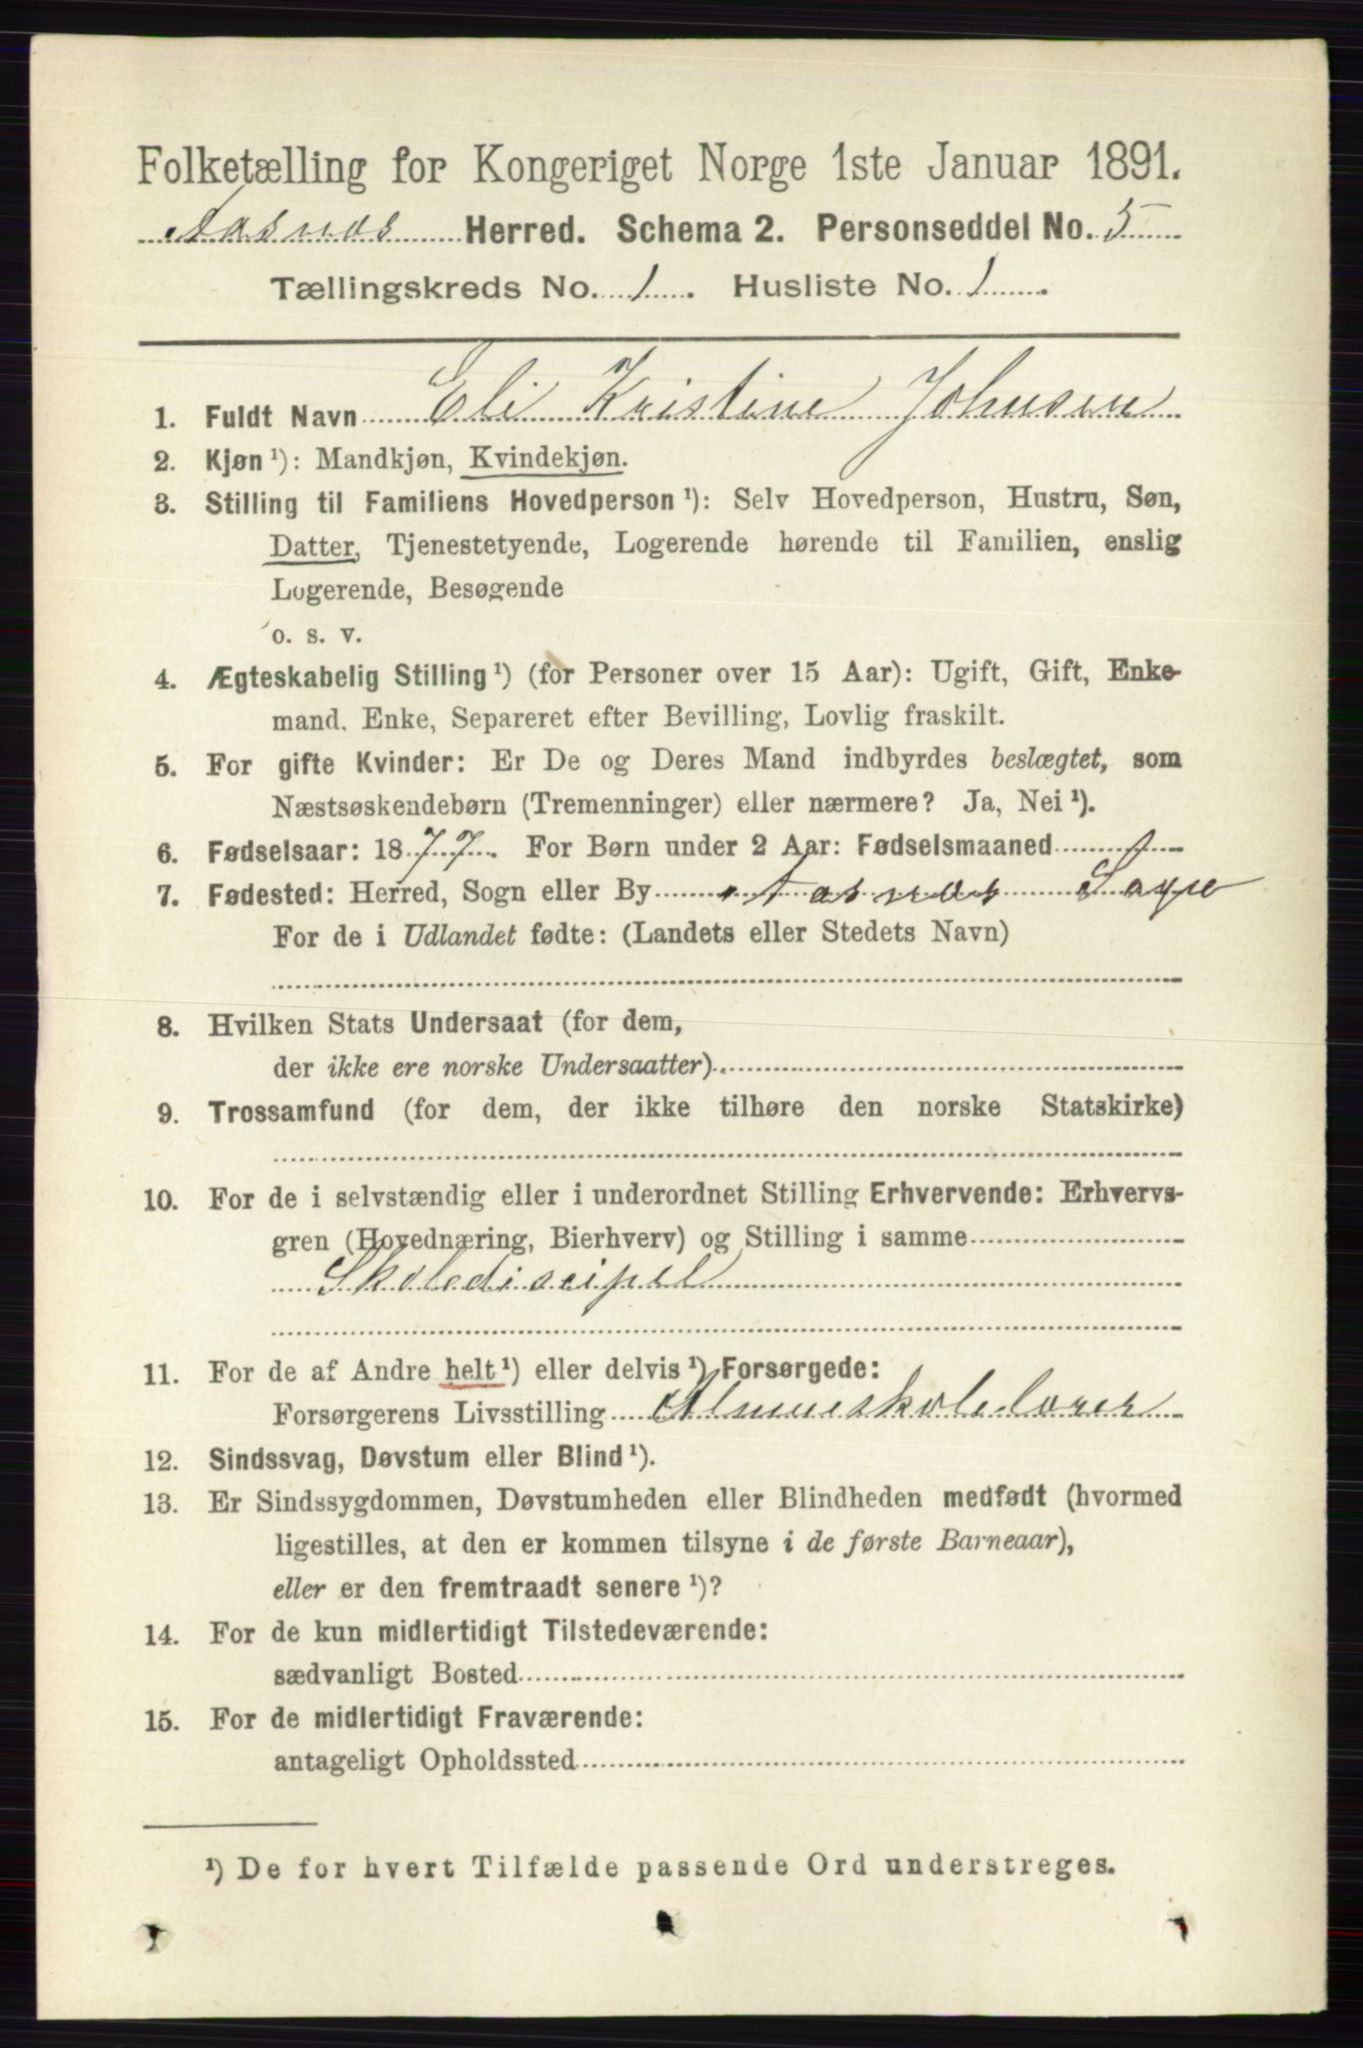 Folketælling for Kongeriget Norge 1ste Januar 1891.
Aasnæs Herred. Schema 2. Personseddel No. 5
Tællingskreds No. 1. Husliste No. 1.
1. Fuldt Navn Eli Kristine Johnsen
2. Kjøn ¹): Mandkjøn, Kvindekjøn.
3. Stilling til Familiens Hovedperson ¹): Selv Hovedperson, Hustru, Søn,
Datter, Tjenestetyende, Logerende hørende til Familien, enslig
Logerende, Besøgende
o. s. v.
4. Ægteskabelig Stilling ¹) (for Personer over 15 Aar): Ugift, Gift, Enke-
mand, Enke, Separeret efter Bevilling, Lovlig fraskilt.
5. For gifte Kvinder: Er De og Deres Mand indbyrdes beslægtet, som
Næstsøskendebørn (Tremenninger) eller nærmere? Ja, Nei ¹).
6. Fødselsaar: 1877. For Børn under 2 Aar: Fødselsmaaned
7. Fødested: Herred, Sogn eller By Aasnæs Sogn
For de i Udlandet fødte: (Landets eller Stedets Navn)
8. Hvilken Stats Undersaat (for dem,
der ikke ere norske Undersaatter)
9. Trossamfund (for dem, der ikke tilhøre den norske Statskirke)
10. For de i selvstændig eller i underordnet Stilling Erhvervende: Erhvervs-
gren (Hovednæring, Bierhverv) og Stilling i samme
Skolediscipel
11. For de af Andre helt ¹) eller delvis ¹) Forsørgede:
Forsørgerens Livsstilling Almueskolelærer
12. Sindssvag, Døvstum eller Blind ¹).
13. Er Sindssygdommen, Døvstumheden eller Blindheden medfødt (hvormed
ligestilles, at den er kommen tilsyne i de første Barneaar),
eller er den fremtraadt senere ¹)?
14. For de kun midlertidigt Tilstedeværende:
sædvanligt Bosted
15. For de midlertidigt Fraværende:
antageligt Opholdssted
¹) De for hvert Tilfælde passende Ord understreges.